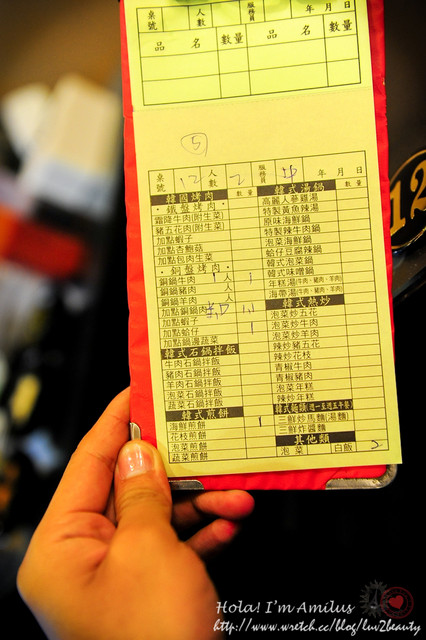 桌號 人數 服務員 年 月 日
品 名 數量 品 名 數量
5
桌號 12 人數 2 服務員 年 月 日
數量 數量
韓國烤肉
・鐵盤烤肉・
霜降牛肉(附生菜)
豬五花肉(附生菜)
加點蝦子
加點杏鮑菇
加點包肉生菜
・銅盤烤肉・
銅鍋牛肉 人
銅鍋豬肉 人
銅鍋羊肉 人
加點銅鍋肉
加點蝦子
加點蛤仔
加點鍋邊蔬菜
韓式石鍋拌飯
牛肉石鍋拌飯
豬肉石鍋拌飯
羊肉石鍋拌飯
泡菜石鍋拌飯
蔬菜石鍋拌飯
韓式煎餅
海鮮煎餅
花枝煎餅
泡菜煎餅
蔬菜煎餅
韓式湯鍋
高麗人蔘雞湯
特製黃魚辣湯
原味海鮮鍋
特製辣牛肉鍋
泡菜海鮮鍋
蛤仔豆腐辣鍋
韓式泡菜鍋
韓式味噌鍋
年糕湯(牛肉、豬肉、羊肉)
海帶湯(牛肉、豬肉、羊肉)
韓式熱炒
泡菜炒五花
泡菜炒牛肉
泡菜炒羊肉
辣炒豬五花
辣炒花枝
青椒牛肉
青椒豬肉
泡菜年糕
辣炒年糕
韓式麵類(週一至週五午餐)
三鮮炒馬麵(湯麵)
三鮮炸醬麵
其他類
泡菜 白飯 2
12
Hola! I'm Amilus
http://www.wretch.cc/blog/luv2beauty